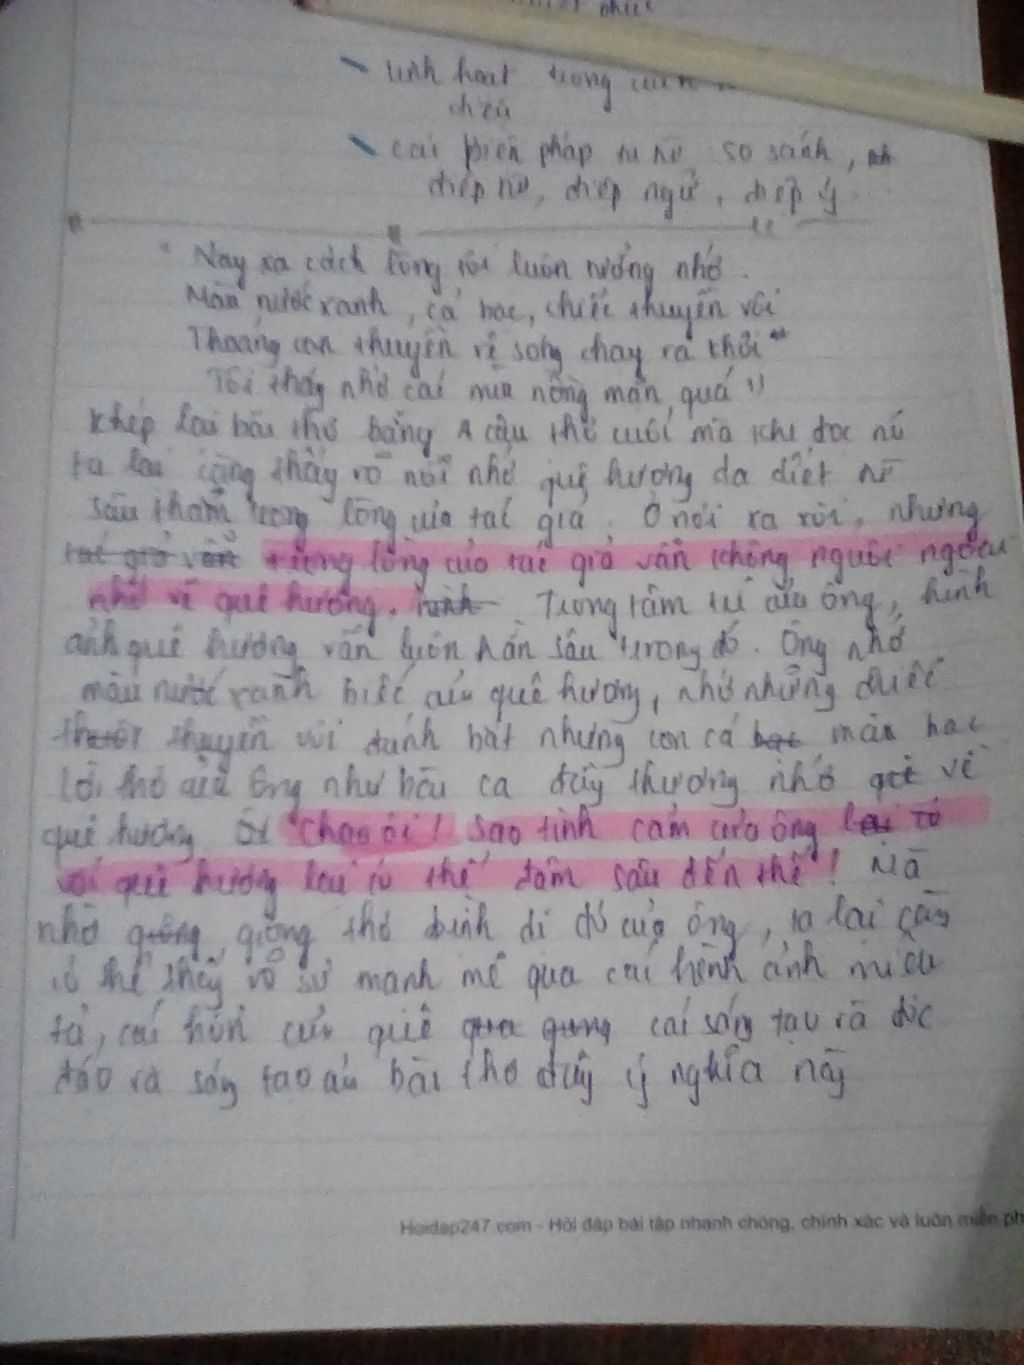 linh hoạt trong
các biện pháp tu từ so sánh,
điệp từ, điệp ngữ, điệp ý
" Nay xa cách lòng tôi luôn tưởng nhớ
Màu nước xanh, cá bạc, chiếc thuyền vôi
Thoáng con thuyền rẽ sóng chạy ra khơi
Tôi thấy nhớ cái mùi nồng mặn quá "
Khép lại bài thơ bằng 4 câu thơ cuối mà khi đọc nó
ta lại càng thấy rõ nỗi nhớ quê hương da diết từ
sâu thẳm trong lòng của tác giả. Ở nơi xa xôi, nhưng
tác giả vẫn tiếng lòng của tác giả vẫn không nguôi ngoai
nhớ về quê hương. hình Trong tâm trí của ông, hình
ảnh quê hương vẫn luôn hằn sâu trong đó. Ông nhớ
màu nước xanh biếc của quê hương, nhớ những chiếc
thuyền vôi đánh bắt những con cá bạc màu bạc
Lời thơ của ông như bài ca đầy thương nhớ về
quê hương Ôi "Chao ôi! Sao tình cảm của ông lại có
với quê hương lại có thể đậm sâu đến thế! Mà
nhờ giọng giọng thơ bình dị đó của ông, ta lại càng
có thể thấy rõ sự mạnh mẽ qua cái hình ảnh miêu
tả, cái hồn của quê cái sáng tạo và độc
đáo và sáng tạo của bài thơ đầy ý nghĩa này
Hoidap247.com - Hỏi đáp bài tập nhanh chóng, chính xác và luôn miễn ph